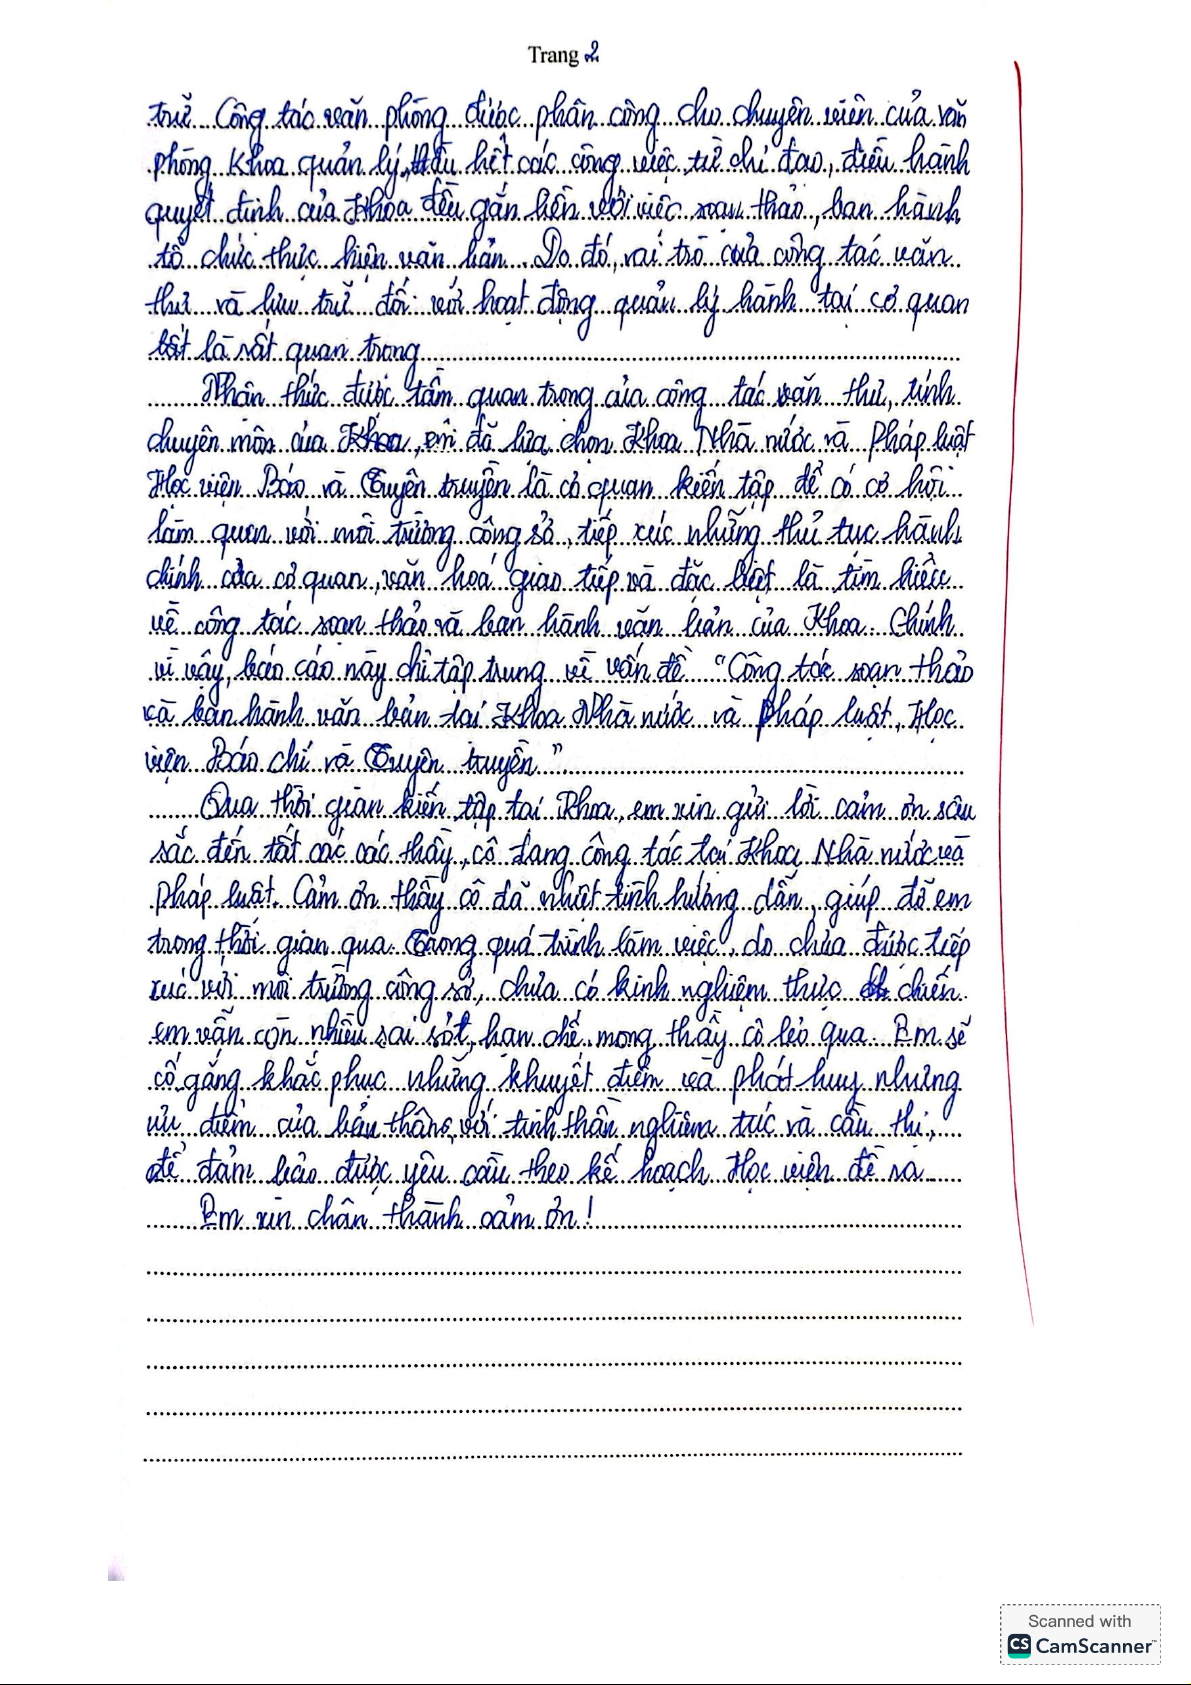 Trang 2
trữ. Công tác văn phòng được phân công cho chuyên viên của văn
phòng Khoa quản lý, Hầu hết các công việc từ chỉ đạo, điều hành
quyết định của Khoa đều gắn liền với việc soạn thảo, ban hành
tổ chức thực hiện văn bản. Do đó, vai trò của công tác văn
thư và lưu trữ đối với hoạt động quản lý hành tại cơ quan
là rất quan trọng
Nhận thức được tầm quan trọng của công tác văn thư, tính
chuyên môn của Khoa, em đã lựa chọn Khoa Nhà nước và Pháp luật
Học viện Báo và Tuyên truyền là cơ quan kiến tập để có cơ hội
làm quen với môi trường công sở, tiếp xúc những thủ tục hành
chính của cơ quan, văn hoá giao tiếp và đặc biệt là tìm hiểu
về công tác soạn thảo và ban hành văn bản của Khoa. Chính
vì vậy, báo cáo này chỉ tập trung về vấn đề "Công tác soạn thảo
và ban hành văn bản tại Khoa Nhà nước và Pháp luật, Học
viện Báo chí và Tuyên truyền"
Qua thời gian kiến tập tại Khoa, em xin gửi lời cảm ơn sâu
sắc đến tất các các thầy, cô đang công tác tại Khoa Nhà nước và
Pháp luật. Cảm ơn thầy cô đã nhiệt tình hướng dẫn, giúp đỡ em
trong thời gian qua. Trong quá trình làm việc, do chưa được tiếp
xúc với môi trường công sở, chưa có kinh nghiệm thực chiến
em vẫn còn nhiều sai sót, hạn chế mong thầy cô bỏ qua. Em sẽ
cố gắng khắc phục những khuyết điểm và phát huy những
ưu điểm của bản thân, với tinh thần nghiêm túc và cầu thị,
để đảm bảo được yêu cầu theo kế hoạch Học viện đề ra
Em xin chân thành cảm ơn!
Scanned with
CS CamScanner